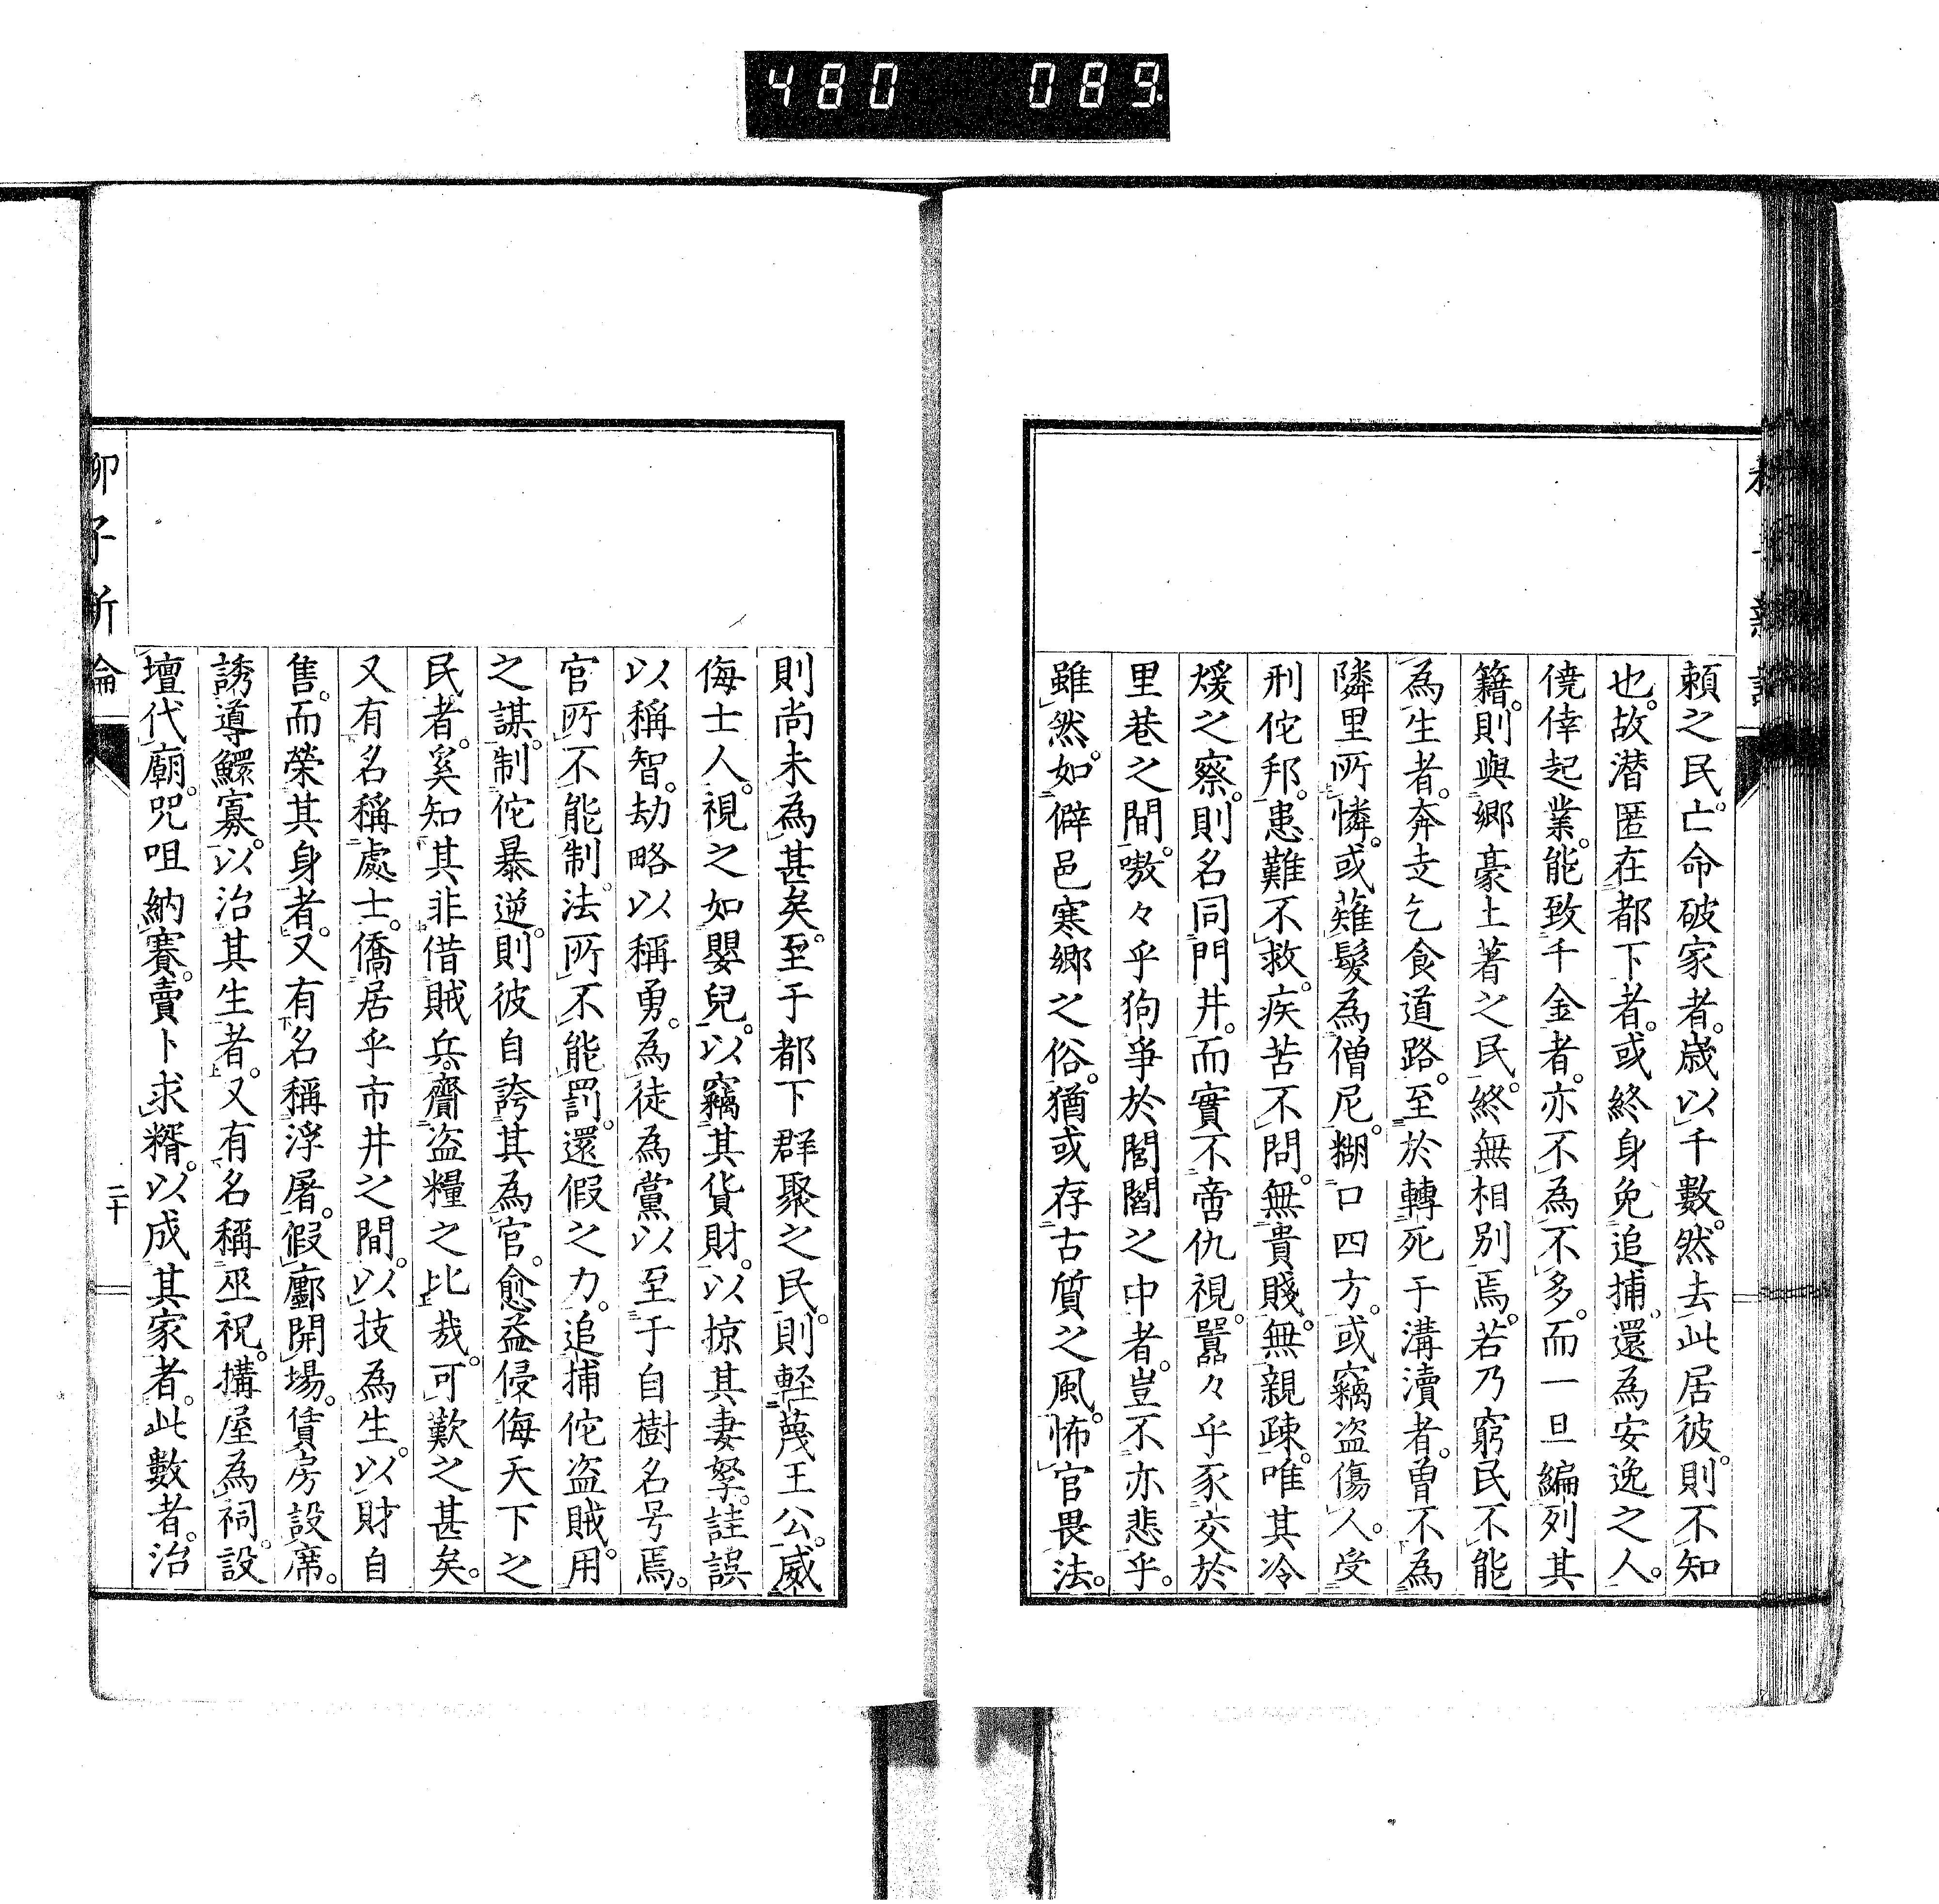 480 089
頼之民。亡命破家者。歳以千數。然去此居彼。則不知
也。故潜匿在都下者。或終身免追捕。還為安逸之人。
僥倖起業。能致千金者。亦不為不多。而一旦編列其
籍。則與郷豪土著之民。終無相別焉。若乃窮民不能
為生者。奔走乞食道路。至於轉死于溝瀆者。曽不為
隣里所憐。或薙髮為僧尼。糊口四方。或竊盗傷人。受
刑佗邦。患難不救。疾苦不問。無貴賤。無親疎。唯其冷
煖之察。則名同門井。而實不啻仇視。囂々乎豕交於
里巷之間。嗷々乎狗爭於閭閻之中者。豈不亦悲乎。
雖然。如僻邑寒郷之俗。猶或存古質之風。怖官畏法。
則尚未為甚矣。至于都下群聚之民。則輕蔑王公。威
侮士人。視之如嬰兒。以竊其貨財。以掠其妻孥。註誤
以稱智。劫略以稱勇。為徒為黨以至于自樹名号焉。
官所不能制。法所不能罰。還假之力。追捕佗盗賊。用
之謀。制佗暴逆。則彼自誇其為官。愈益侵侮天下之
民者。奚知其非借賊兵。齎盗糧之比哉。可歎之甚矣。
又有名稱處士。僑居乎市井之間。以技為生。以財自
售。而榮其身者。又有名稱浮屠。假鄽開場。賃房設席。
誘導鰥寡。以治其生者。又有名稱巫祝。搆屋為祠。設
壇代廟。咒咀納賽。賣卜求糈。以成其家者。此數者。治
柳子新論
二十